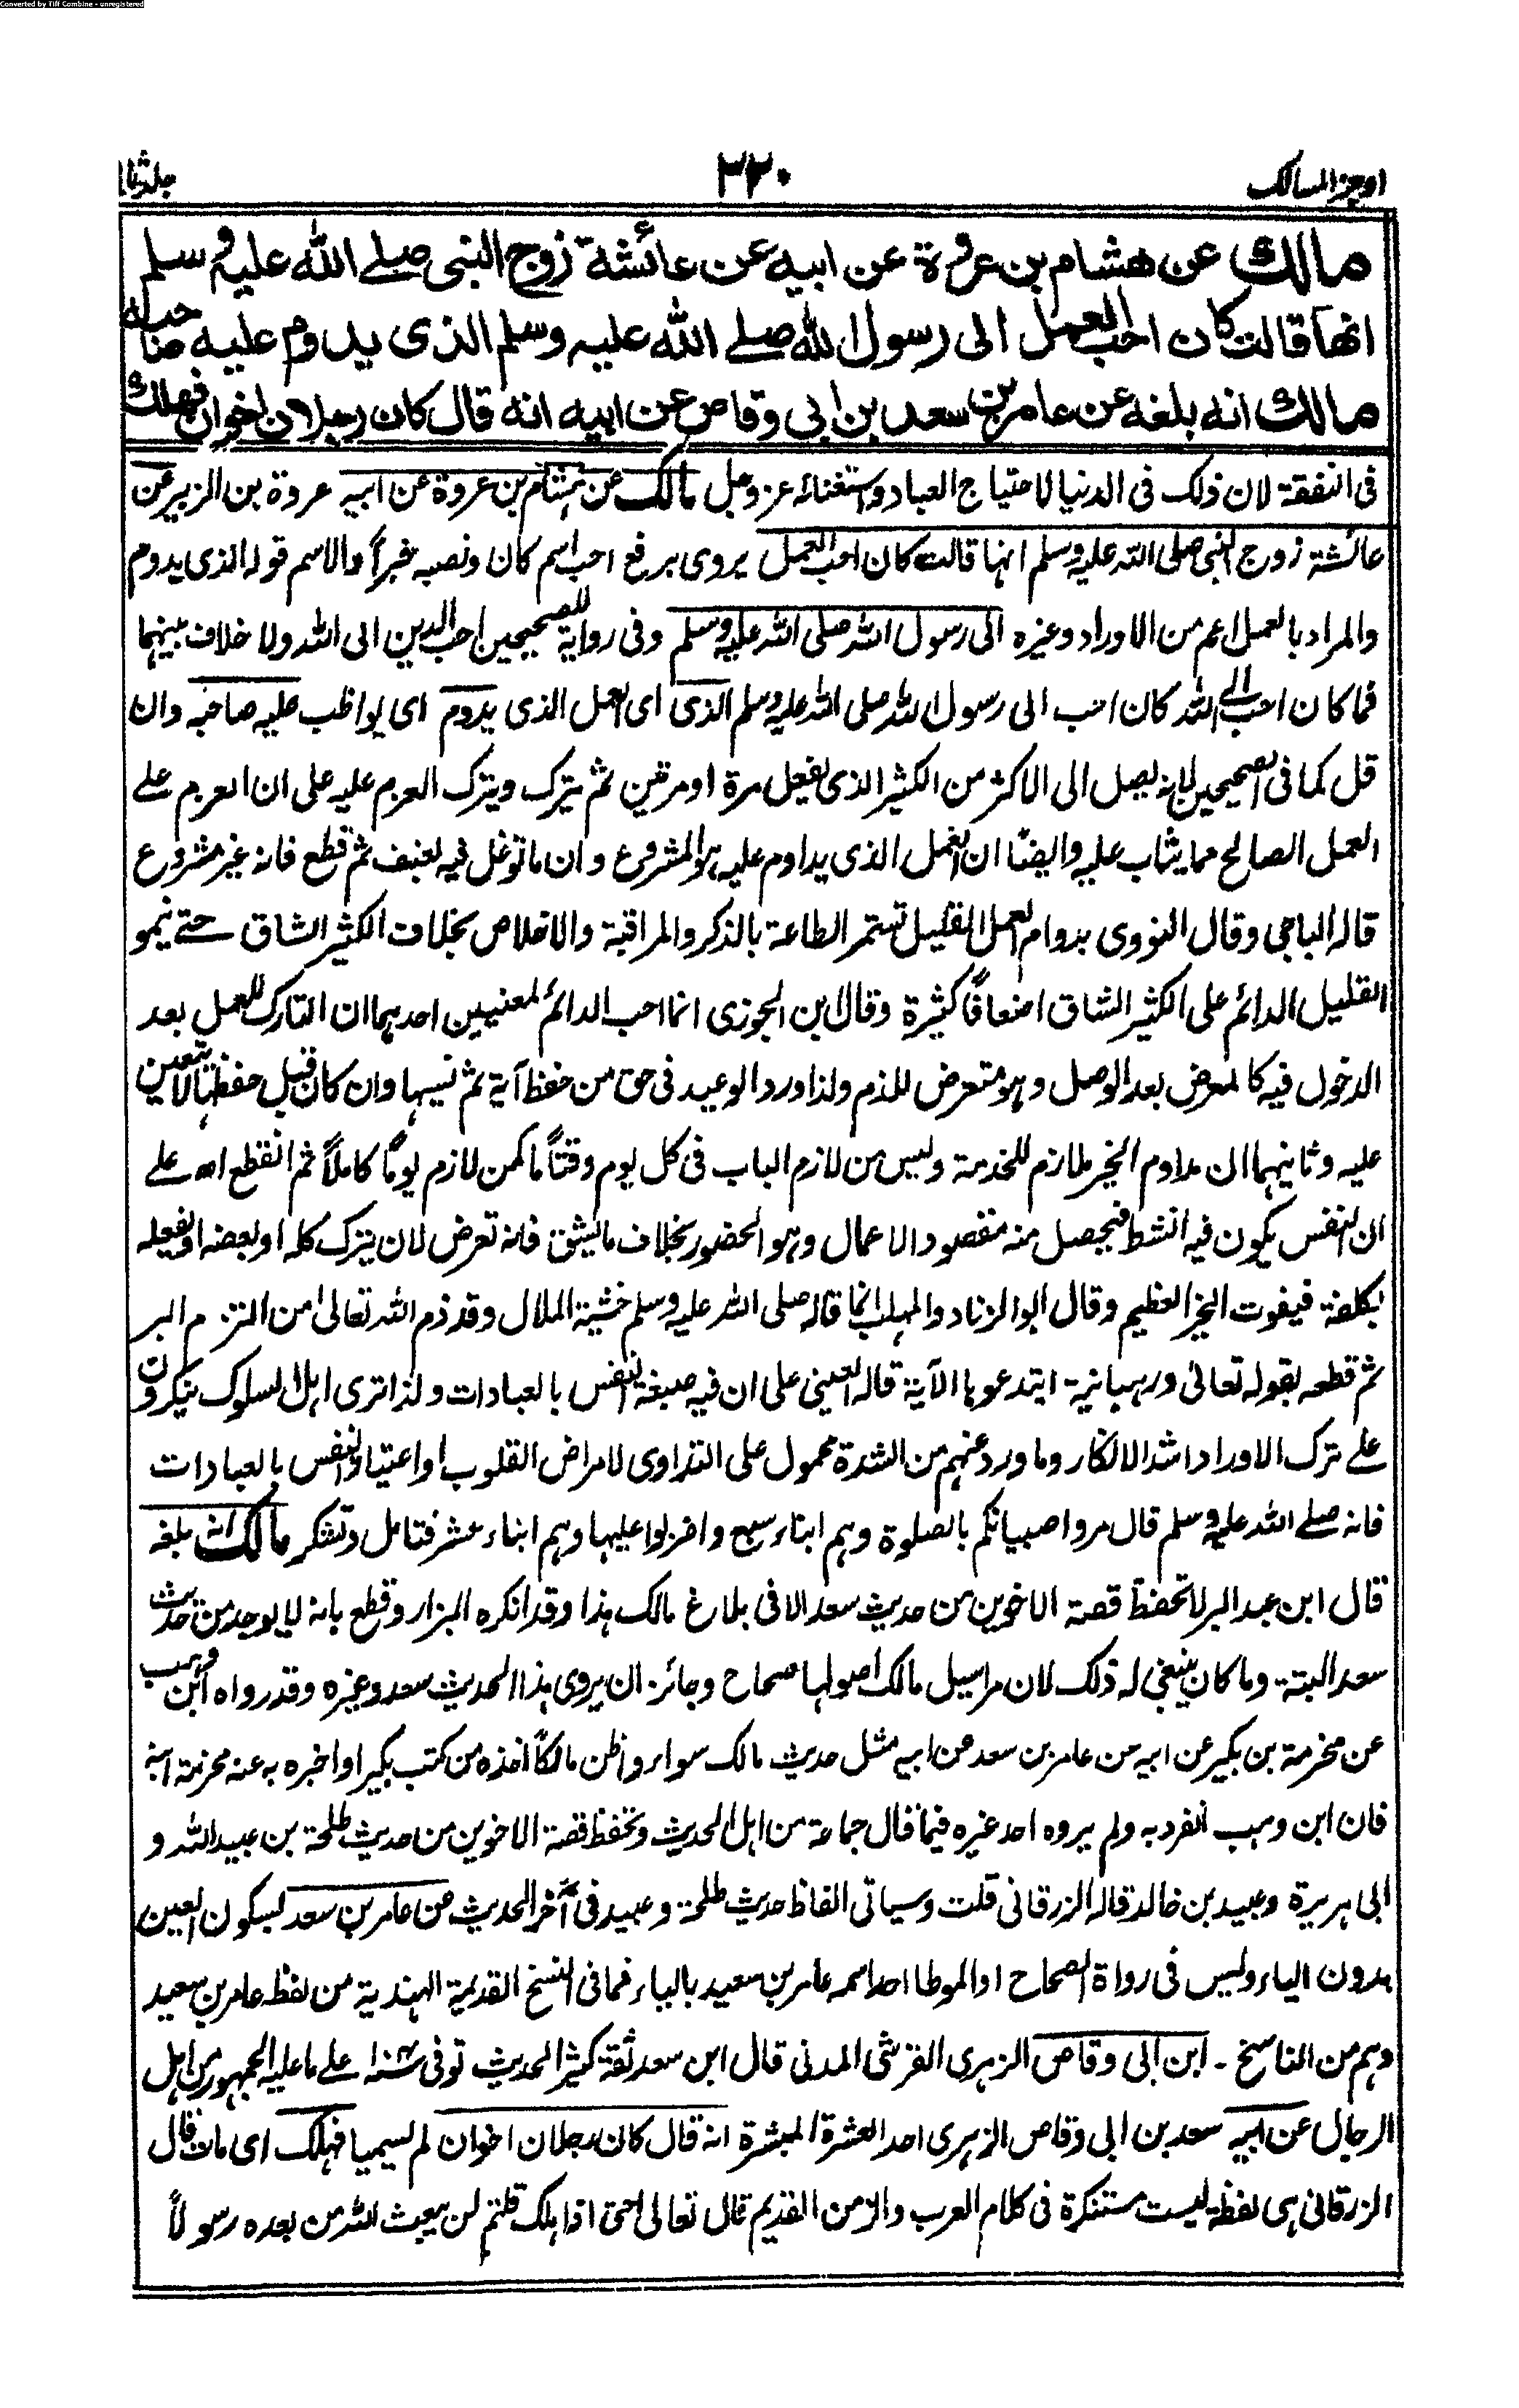 Converted by Tiff Combine - unregistered
اوجز المسالك
٣٢٠
جلد ثانی
مالك عن هشام بن عروة عن ابيه عن عائشة زوج النبي صلے الله عليه وسلم
انها قالت كان احب العمل الى رسول الله صلے الله عليه وسلم الذى يدوم عليه صاحبه
مالك انه بلغه عن عامر بن سعد بن ابي وقاص عن ابيه انه قال كان رجلان اخوان فهلك
فى النفقة لان ذلك فى الدنيا لاحتياج العباد واستغنائه عز وجل مالك عن هشام بن عروة عن ابيه عروة بن الزبير عن
عائشة زوج النبى صلى الله عليه وسلم انها قالت كان احب العمل يروى برفع احب اسم كان ونصبه خبراً والاسم قوله الذى يدوم
والمراد بالعمل اعم من الاوراد وغيره الى رسول الله صلى الله عليه وسلم وفى رواية للصحيحين احب الدين الى الله ولا خلاف بينهما
فما كان احب الى الله كان احب الى رسول الله صلى الله عليه وسلم الذى اى العمل الذى يدوم اى يواظب عليه صاحبه وان
قل كما فى الصحيحين لانه يصل الى الاكثر من الكثير الذى يفعل مرة او مرتين ثم يترك ويترك العزم عليه على ان العزم علے
العمل الصالح مما يثاب عليه وايضا ان العمل الذى يداوم عليه هو المشروع وان ما توغل فيه بعنف ثم قطع فانه غير مشروع
قاله الباجى وقال النووى بدوام العمل القليل تستمر الطاعة بالذكر والمراقبة والاخلاص بخلاف الكثير الشاق حتے ينمو
القليل الدائم على الكثير الشاق اضعافاً كثيرة وقال ابن الجوزى انما احب الدائم لمعنيين احدهما ان التارك للعمل بعد
الدخول فيه كالمعرض بعد الوصل وهو متعرض للذم ولذا ورد الوعيد فى حق من حفظ آية ثم نسيها وان كان قبل حفظها لا يتعين
عليه وثانيهما ان مداوم الخير ملازم للخدمة وليس من لازم الباب فى كل يوم وقتاً ما كمن لازم يوماً كاملاً ثم انقطع اه علے
ان النفس يكون فيه انشط فيحصل منه مقصود الاعمال وهو الحضور بخلاف ما يشق فانه تعرض لان يترك كله او بعضه او يفعله
بكلفة فيفوت الخير العظيم وقال ابو الزناد والمهلب انما قاله صلى الله عليه وسلم خشية الملال وقد ذم الله تعالى من التزم البر
ثم قطعه بقوله تعالى ورهبانية ابتدعوها الآية قاله العينى على ان فيه صبغة النفس بالعبادات ولذا ترى اهل السلوك ينكرون
علے ترك الاوراد اشد الانكار وما ورد عنهم من الشدة محمول على التداوى لامراض القلوب او اعتياد النفس بالعبادات
فانه صلے الله عليه وسلم قال مروا صبيانكم بالصلوة وهم ابناء سبع واضربوا عليها وهم ابناء عشر فتامل وتشكر مالك انه بلغه
قال ابن عبد البر لا تحفظ قصة الاخوين من حديث سعد الا فى بلاغ مالك هذا وقد انكره البزار وقطع بانه لا يوجد من حديث
سعد البتة وما كان ينبغى له ذلك لان مراسيل مالك اصولها صحاح وجائز ان يروى هذا الحديث سعد وغيره وقد رواه ابن وهب
عن مخرمة بن بكير عن ابيه عن عامر بن سعد عن ابيه مثل حديث مالك سواء واظن مالكاً اخذه من كتب بكير او اخبره به عنه مخرمة ابنه
فان ابن وهب انفرد به ولم يروه احد غيره فيما قال جماعة من اهل الحديث وتحفظ قصة الاخوين من حديث طلحة بن عبيد الله و
ابى هريرة وعبيد بن خالد قاله الزرقانى قلت وسياتى الفاظ حديث طلحة وعبيد فى آخر الحديث عن عامر بن سعد بسكون العين
بدون الياء وليس فى رواة الصحاح او الموطا احد اسمه عامر بن سعيد بالياء فما فى النسخ القديمة الهندية من لفظ عامر بن سعيد
وهم من الناسخ ۔ ابن ابى وقاص الزهرى القرشى المدنى قال ابن سعد ثقة كثير الحديث توفى سنة علے ما عليه الجمهور من اهل
الرجال عن ابيه سعد بن ابى وقاص الزهرى احد العشرة المبشرة انه قال كان رجلان اخوان لم يسميا فهلك اى مات قال
الزرقانى هى لفظة ليست مستنكرة فى كلام العرب والزمن القديم قال تعالى حتى اذا هلك قلتم لن يبعث الله من بعده رسولاً